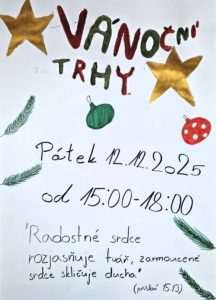 VÁNOČNÍ
TRHY
Pátek 12.12.2025
od 15:00-18:00
"Radostné srdce
rozjasňuje tvář, zarmoucené
srdce skličuje ducha."
(přísloví 15.13)